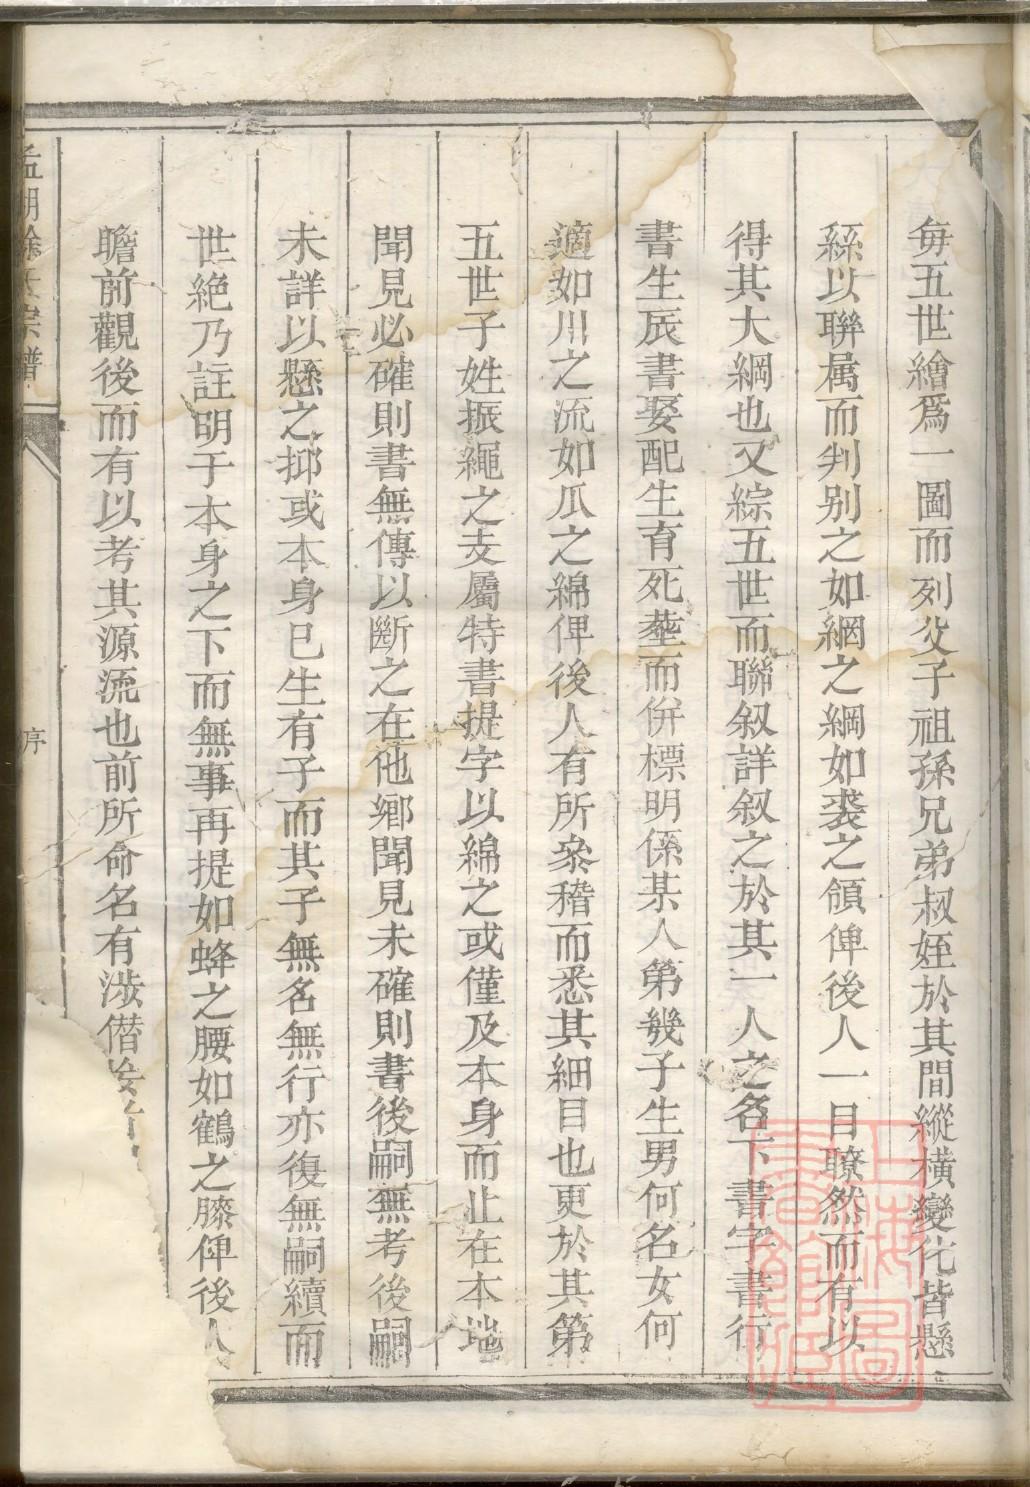 每五世繪爲一圖而列父子祖孫兄弟叔姪於其間縱橫變化皆懸
絲以聯属而判别之如網之綱如裘之領俾後人一目瞭然而有以
得其大綱也又綜五世而聯叙詳叙之於其一人之名下書字書行
書生辰書娶配生育死塟而併標明係某人第幾子生男何名女何
適如川之流如瓜之綿俾後人有所叅稽而悉其細目也更於其第
五世子姓振繩之支屬特書提字以綿之或僅及本身而止在本地
聞見必確則書無傳以斷之在他鄉聞見未確則書後嗣無考後嗣
未詳以懸之抑或本身已生有子而其子無名無行亦復無嗣續而
世絶乃註明于本身之下而無事再提如蜂之腰如鶴之膝俾後人
瞻前觀後而有以考其源流也前所命名有涉僭
徐氏宗譜
序
上海圖書館藏